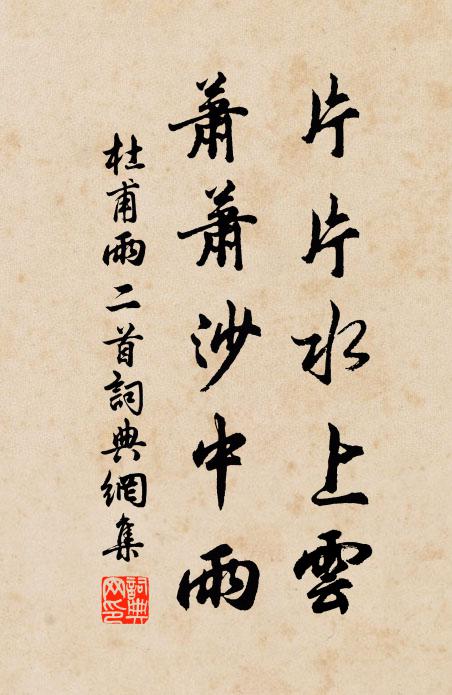 片片水上雲
蕭蕭沙中雨
杜甫雨二首詞典網集
詞典網印